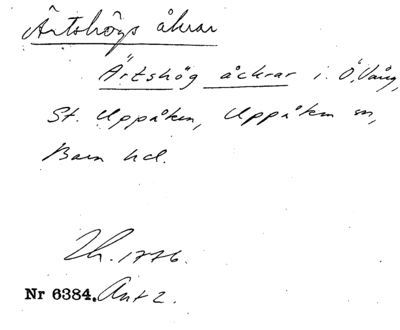 Ärtshögs åkrar
Ärtshög åckrar i Ö. Vång,
St. Uppåkra, Uppåkra sn,
Bara hd.
Lh. 1776.
Nr 6384. Akt 2.